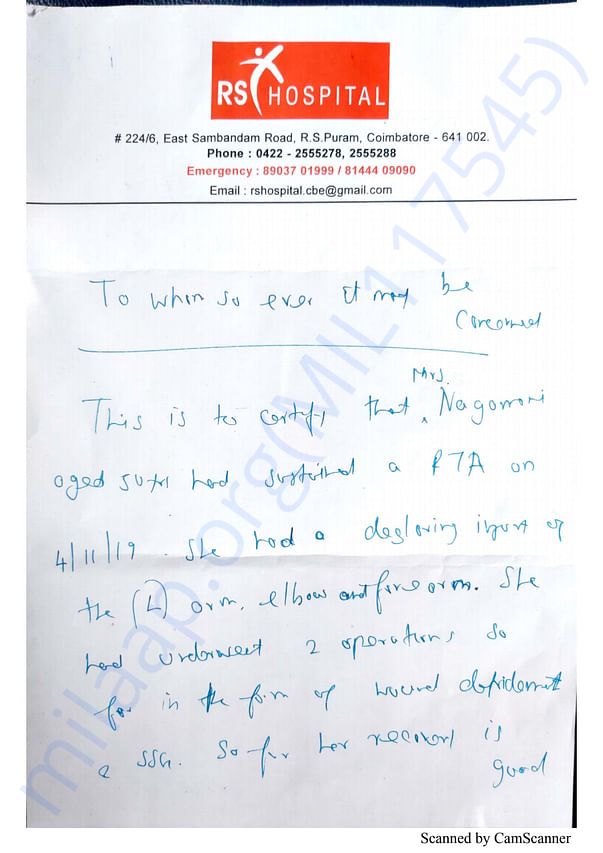 RS HOSPITAL
# 224/6, East Sambandam Road, R.S.Puram, Coimbatore - 641 002.
Phone : 0422 - 2555278, 2555288
Emergency : 89037 01999 / 81444 09090
Email : rshospital.cbe@gmail.com
To whom so ever it may be
Concerned
This is to certify that Mrs. Nagamani
aged 50 yrs had sustained a RTA on
4/11/19. She had a degloving injury of
the (L) arm, elbow and forearm. She
had underwent 2 operations so
far in the form of wound debridement
& SSG. So far her recovery is
good
milaap.org(MIL117545)
Scanned by CamScanner